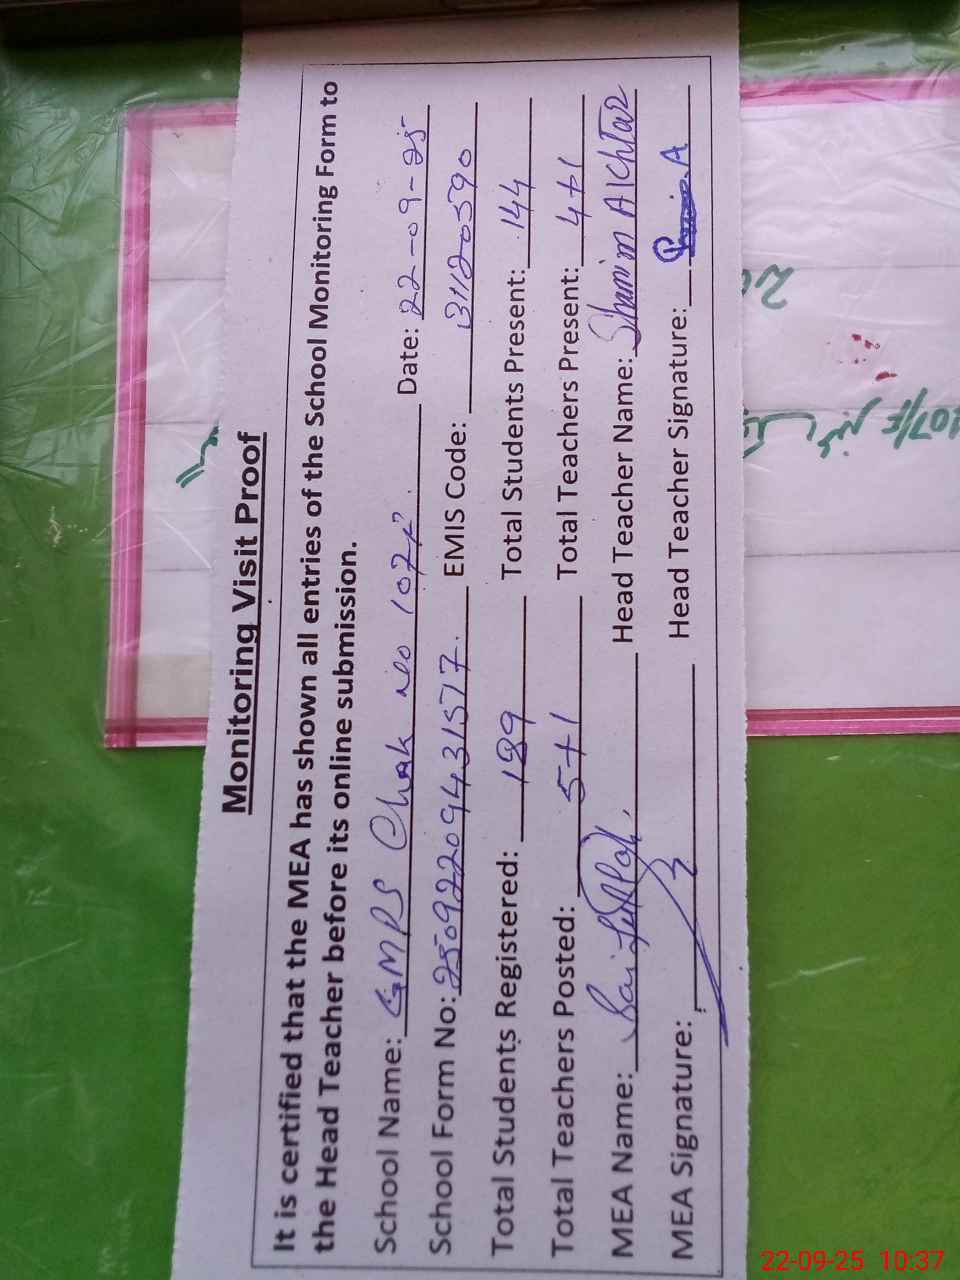 Monitoring Visit Proof
It is certified that the MEA has shown all entries of the School Monitoring Form to
the Head Teacher before its online submission.
School Name: GMPS Chak no 107 Date: 22-09-25
School Form No: 2509220943 EMIS Code: 31120590
Total Students Registered: 189 Total Students Present: 144
Total Teachers Posted: 5+1 Total Teachers Present: 4+1
MEA Name: Head Teacher Name: Shamim Akhtar
MEA Signature: Head Teacher Signature:
107/F
22-09-25 10:37